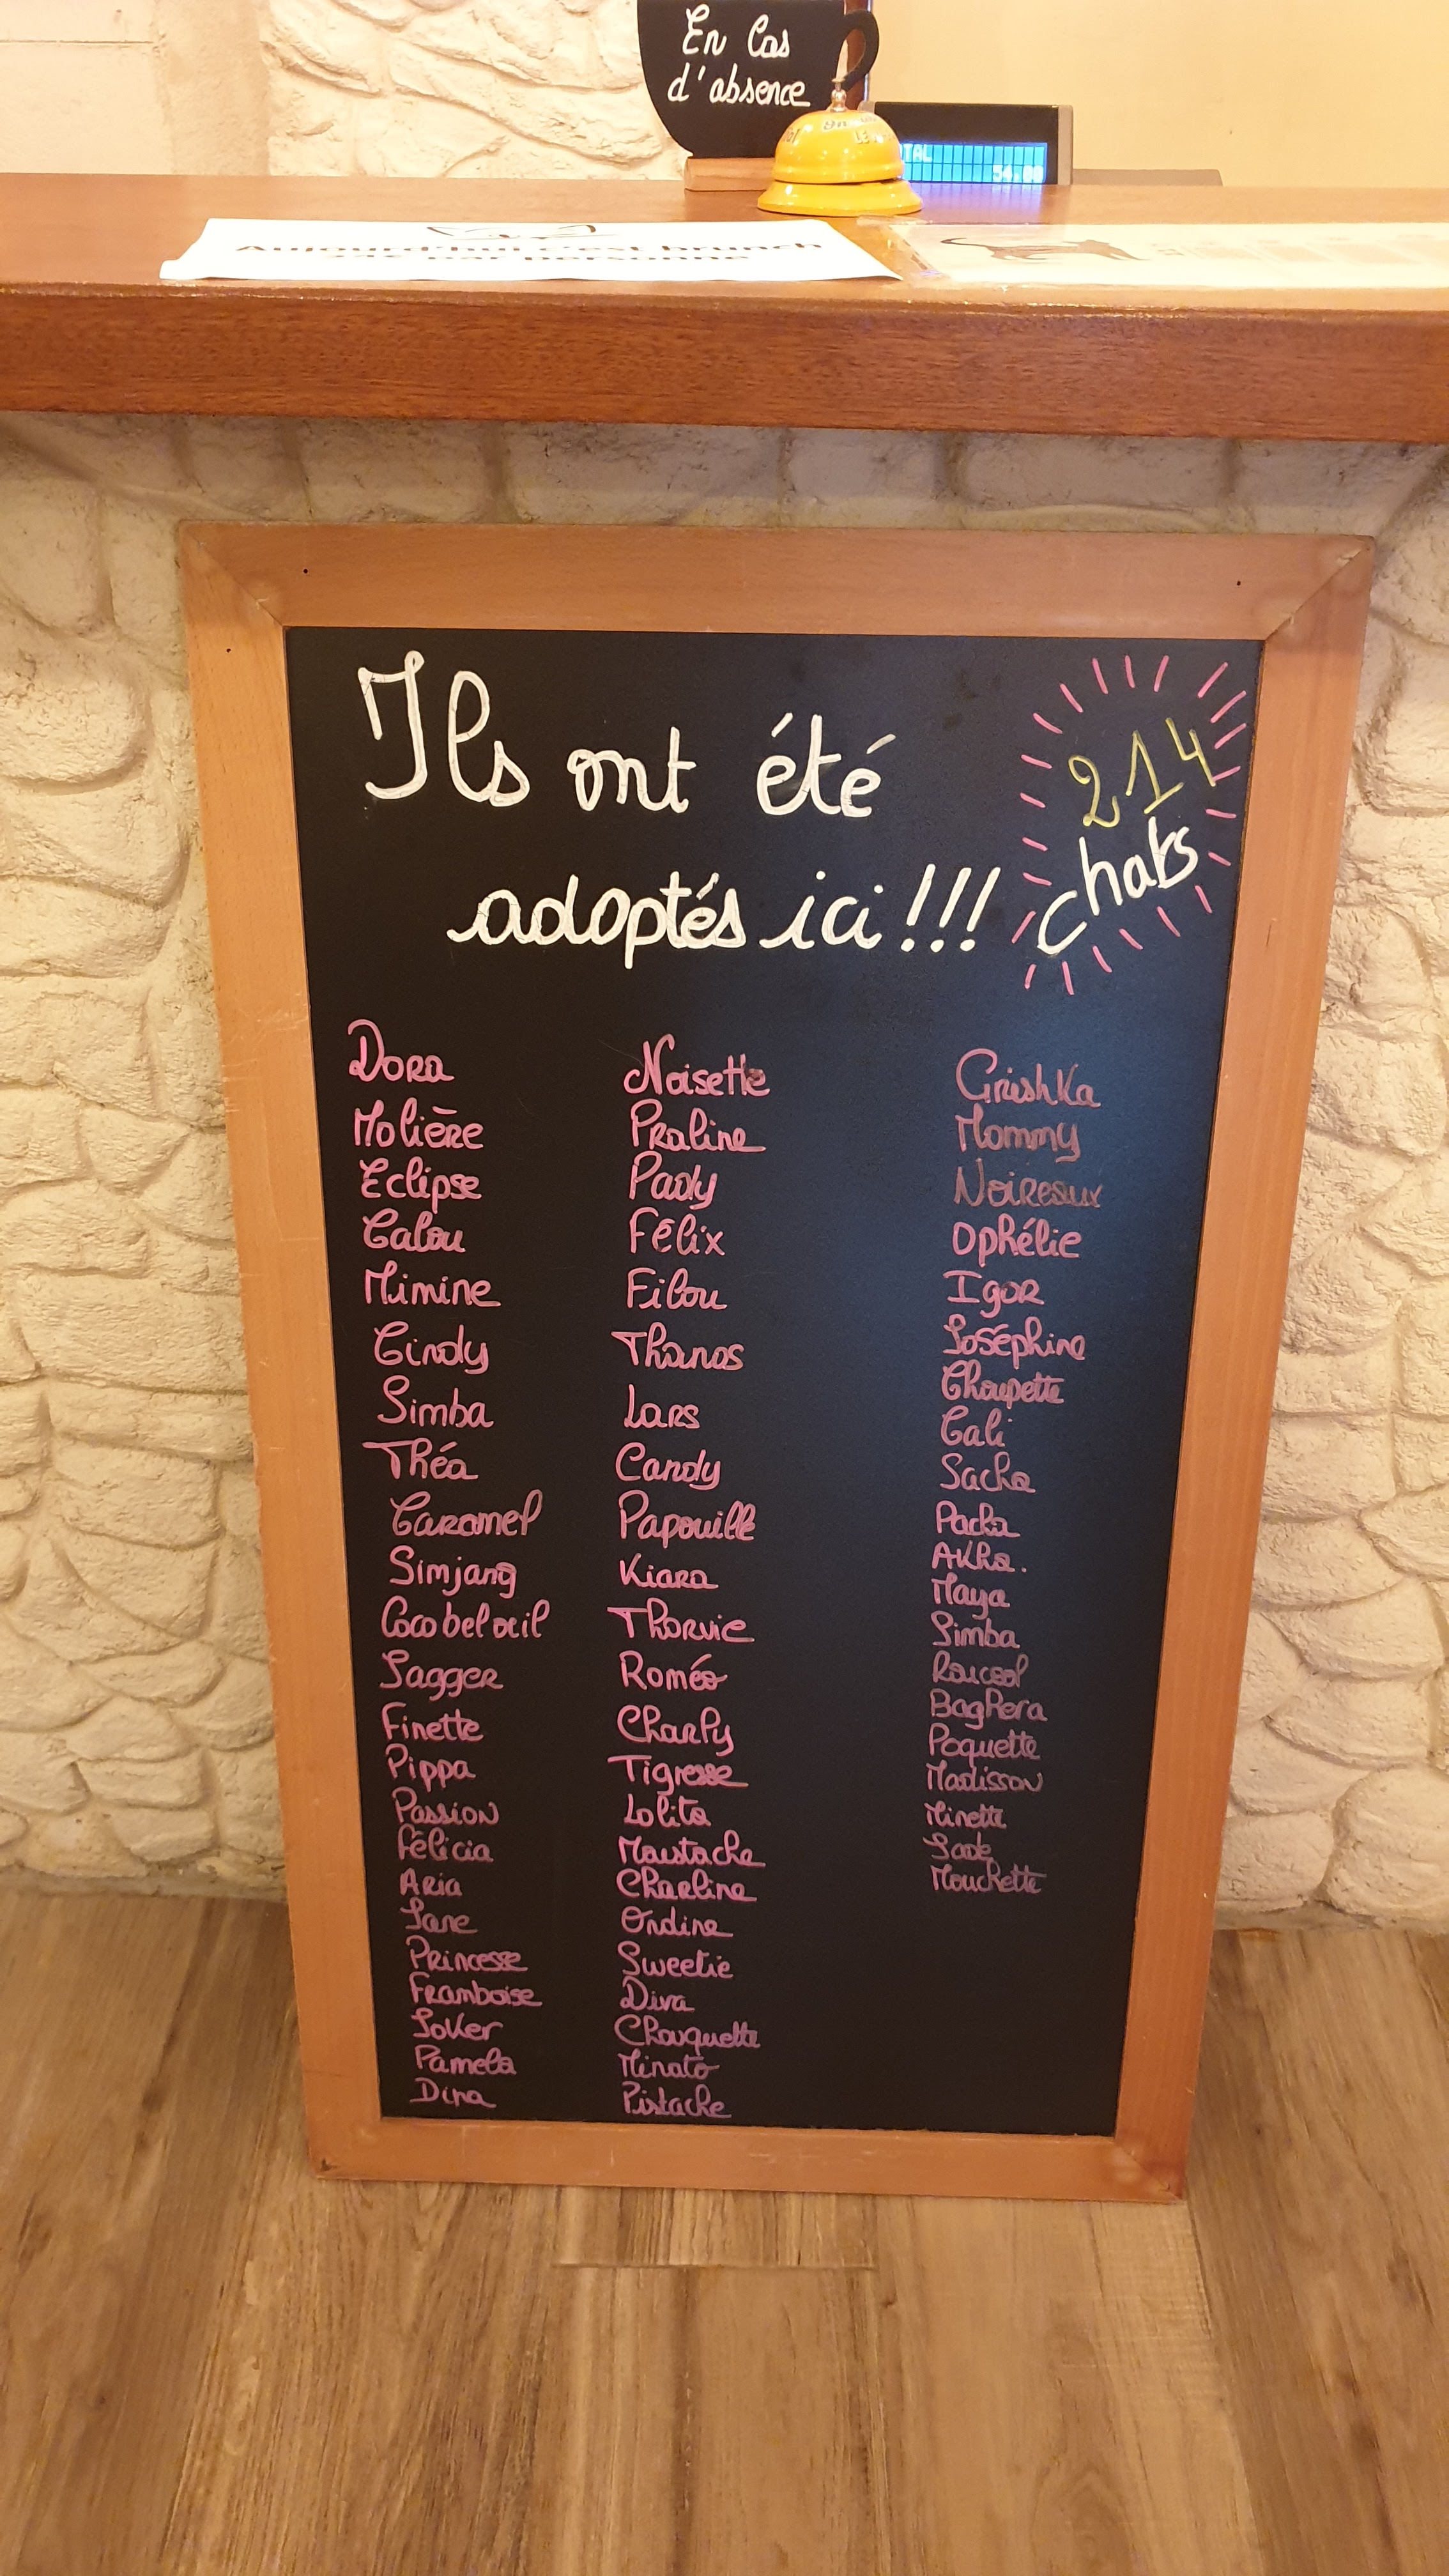 En Cas
d'absence
TAL
54.00
Aujourd'hui c'est brunch
24€ par personne
Ils ont été
adoptés ici !!!
214
chats
Dora
Molière
Eclipse
Calou
Mimine
Cindy
Simba
Théa
Caramel
Simjang
Coco bel œil
Jagger
Finette
Pippa
Passion
Félicia
Aria
Jane
Princesse
Framboise
Joker
Pamela
Dina
Noisette
Praline
Pady
Félix
Filou
Thanos
Lars
Candy
Papouille
Kiara
Thorvie
Roméo
Charly
Tigresse
Lolita
Moustache
Charline
Ondine
Sweetie
Diva
Chouquette
Minato
Pistache
Grishka
Mommy
Noireaux
Ophélie
Igor
Joséphine
Choupette
Cali
Sacha
Pacha
Akha.
Maya
Simba
Roucool
Baghera
Poquette
Madisson
Minette
Jade
Mouchette